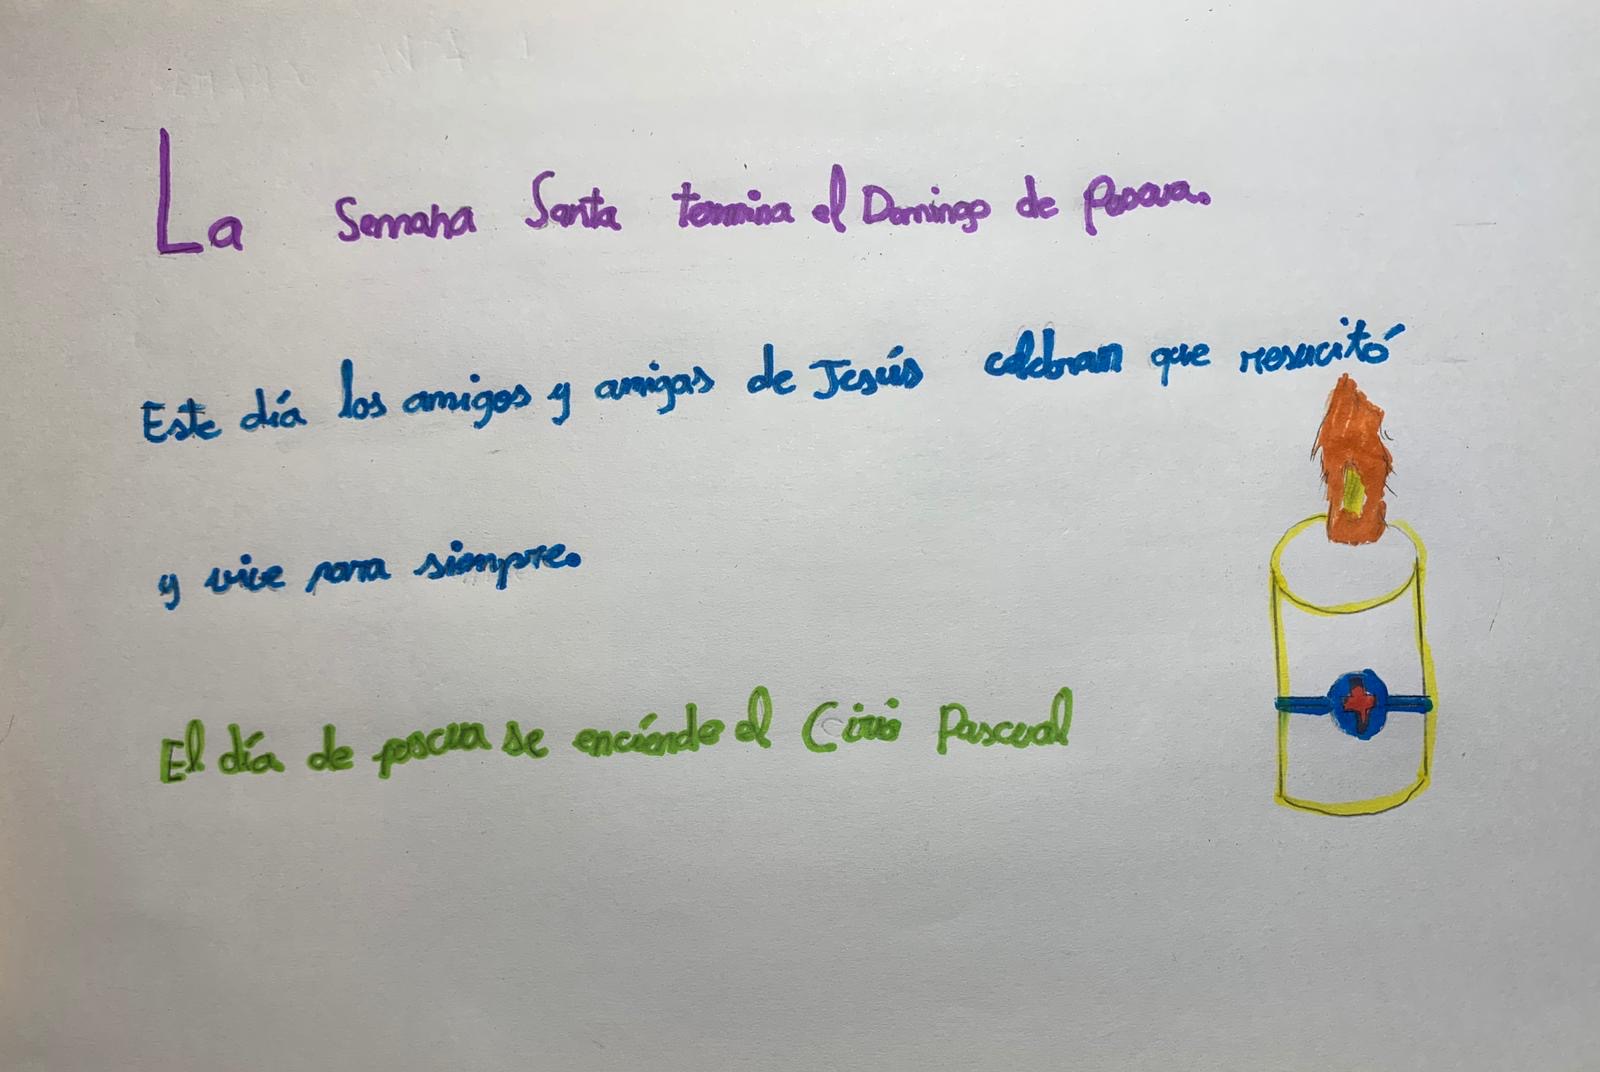 La Semana Santa termina el Domingo de Pascua.
Este día los amigos y amigas de Jesús celebran que resucitó
y vive para siempre.
El día de pascua se enciénde el Cirio Pascual